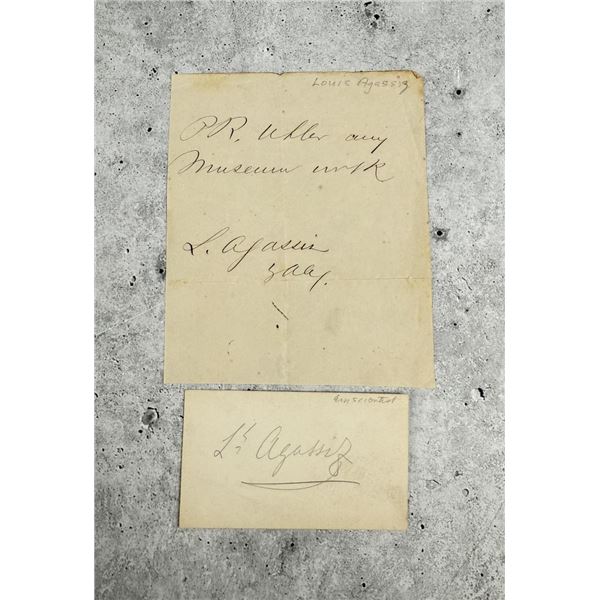 Louis Agassiz
P.R. Uhler any
Museum work
L. Agassiz
Ls Agassiz